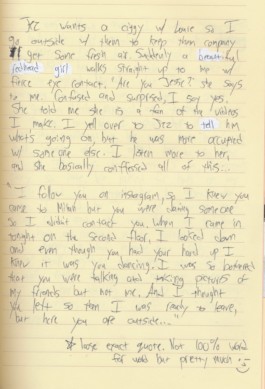 Jxc wants a ciggy w/ Louie so I
go outside w/ them to keep them company
& get some fresh air. Suddenly a beautiful
redhead girl walks straight up to me w/
fierce eye contact. "Are you Jesse?" she says
to me. Confused and surprised, I say yes.
She told me she is a fan of the videos
I make. I yell over to Jxc to tell him
what's going on, but he was more occupied
w/ someone else. I listen more to her,
and she basically confessed all of this...
"I follow you on instagram, so I knew you
came to but you were dating someone
so I didn't contact you. When I came in
tonight on the second floor, I looked down
and even though you had your hood up I
knew it was you dancing. I was so bothered
that you were talking and taking pictures of
my friends but not me. And I thought
you left so then I was ready to leave,
but here you are outside..."
* loose exact quote. Not 100% word
for word but pretty much :)